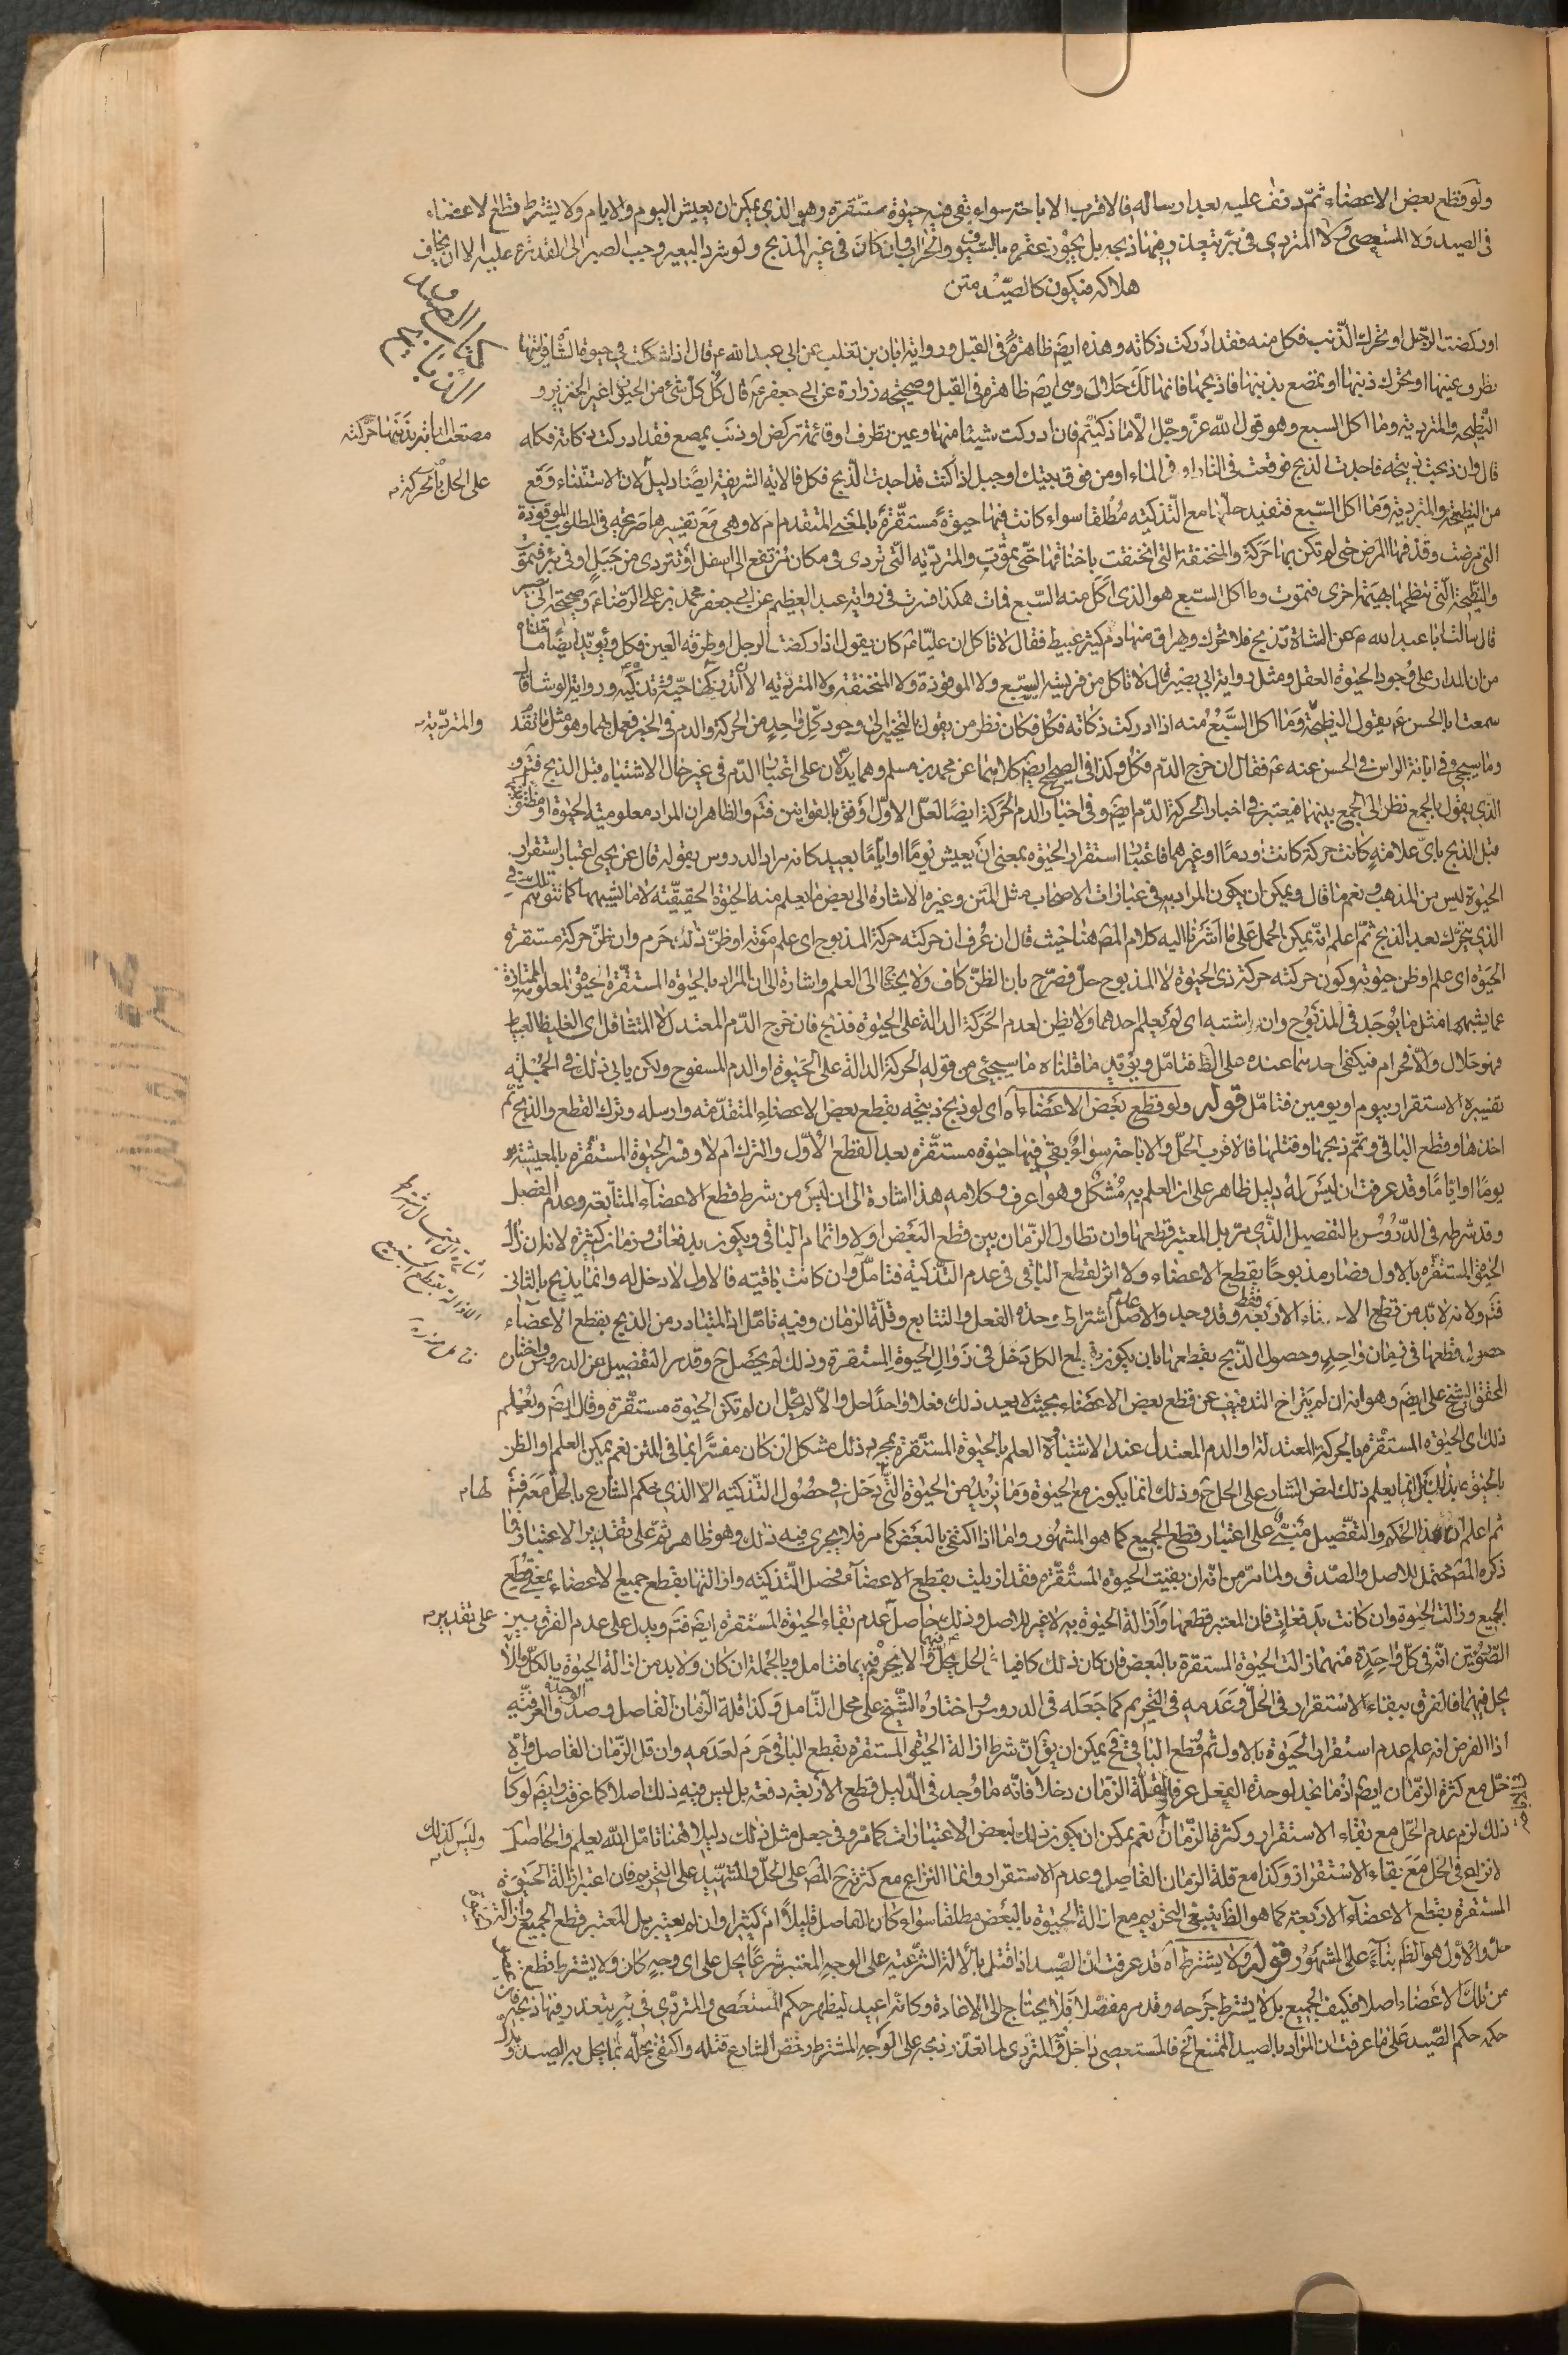 ولو قطع بعض الاعضاء ثمّ دفف عليه بعد ارساله فالاقرب الاباحة سواء بقي فيه حيوة مستقرة وهو الذي يمكن ان يعيش اليوم والايام ولا يشترط قطع الاعضاء
في الصيد ولا المستعصي ولا المتردي في بئر يتعذر فيهما ذبحه بل يجوز عقره بالسيوف والحراب وان كان في غير المذبح ولو شرد البعير وجب الصبر الى القدرة عليه الا ان يخاف
هلاكه فيكون كالصيد متن
كتاب الصيد
والذبايح
او ركضت الرجل او تحرك الذنب فكل منه فقد ادركت ذكاته وهذه ايضم ظاهرة في القبل ورواية ابان بن تغلب عن ابي عبد الله ع قال اذا شككت في حيوة الشاة فرايتها
تطرف عينها او تحرك ذنبها او تمصع بذنبها فاذبحها فانها لك حلال وهي ايضم ظاهرة في القبل وصحيحة زرارة عن ابي جعفر ع قال كل كل شئ من الحيوان غير الخنزير و
النطيحة والمتردية وما اكل السبع وهو قول الله عز وجل الا ما ذكيتم فان ادركت شيئا منها وعين تطرف او قائمة تركض او ذنب يمصع فقد ادركت ذكاته فكله
مصعت الدابة بذنبها حركته
قال وان ذبحت ذبيحة فاجدت الذبح فوقعت في النار او في الماء او من فوق بيتك او جبل اذا كنت قد اجدت الذبح فكل فالاية الشريفة ايضا دليل لان الاستثناء وقع
على الحل بالحركة م
من النطيحة والمتردية وما اكل السبع فتفيد حلها مع التذكية مطلقا سواء كانت فيها حيوة مستقرة بالمعنى المتقدم ام لا وهي مع تفسيرها صريحة في المطلوب الموقوذة
التي مرضت وقذفها المرض حتى لم تكن بها حركة والمنخنقة التي انخنقت باخناقها حتى تموت والمتردية التي تردى في مكان مرتفع الى اسفل او تتردى من جبل او في بئر فتموت
والنطيحة التي تنطحها بهيمة اخرى فتموت وما اكل السبع هو الذي اكل منه السبع فمات هكذا فسرت في رواية عبد العظيم عن ابي جعفر محمد بن علي الرضا ع وصحيحة ابي بصير
قال سالت ابا عبد الله ع عن الشاة تذبح فلا تحرك ويهراق منها دم كثير عبيط فقال لا تاكل ان عليا ع كان يقول اذا ركضت الرجل او طرفه العين فكل ويؤيد ايضا ما قلناه
من ان المدار على وجود الحيوة العقل ومثل رواية ابي بصير قال لا تاكل من فريسة السبع ولا الموقوذة ولا المنخنقة ولا المتردية الا ان تدركها حية فتذكيه ورواية الوشا قال
سمعت ابا الحسن ع يقول النطيحة وما اكل السبع منه اذا ادركت ذكاته فكل فكان نظر من يقول بالتخيير الى وجود كل واحد من الحركة والدم في الخبر فعمل بهما وهو مثل ما تقدم
والمتردية م
وما سيجئ وفي ابانة الراس في الحسن عنه ع فقال ان خرج الدم فكل وكذا في الصحيح ايضم كلاهما عن محمد بن مسلم وهما يدلان على اعتبار الدم في غير حال الاشتباه قبل الذبح فتم و
الذي يقول بالجمع نظر الى الجمع بينهما فيعتبر في اخبار الحركة الدم ايضم وفي اخبار الدم الحركة ايضا لعل الاول اوفق بالقوانين فتم والظاهر ان المراد معلومية الحيوة او مظنونيته
قبل الذبح باي علامة كانت حركة كانت او دما او غيرهما فاعتبار استقرار الحيوة بمعنى ان يعيش يوما او اياما بعيد كانه مراد الدروس بقوله قال عن يحيى اعتبار استقرار
الحيوة ليس من المذهب ونعم ما قال ويمكن ان يكون المراد به في عبارات الاصحاب مثل المتن وغيره الاشارة الى بعض ما يعلم منه الحيوة الحقيقية لا ما يشبهها كما تتوهم تلك في
الذي يتحرك بعد الذبح ثم اعلم انه يمكن الحمل على ما اشرنا اليه كلام المص هنا حيث قال ان عرف ان حركته حركة المذبوح اي علم موته او ظن ذلك حرم وان ظن حركة مستقرة
الحيوة اي علم او ظن حيوته وكون حركته حركة ذي الحيوة لا المذبوح حل فصرح بان الظن كاف ولا يحتاج الى العلم واشارة الى ان المراد بالحيوة المستقرة الحيوة المعلومة الممتازة
عما يشبهها مثل ما يوجد في المذبوح وان اشتبه اي لم يعلم احدهما ولا يظن لعدم الحركة الدالة على الحيوة فذبح فان خرج الدم المعتدل لا المتثاقل اي الغليظ العبيط
فهو حلال والا فحرام فيكفي احدهما عنده على الظ فتامل ويؤيد ما قلناه ما سيجئ من قوله الحركة الدالة على الحيوة او الدم المسفوح ولكن يابى ذلك في الجملة
تفسيره الاستقرار بيوم او يومين فتامل قوله ولو قطع بعض الاعضاء اه اي لو ذبح ذبيحة بقطع بعض الاعضاء المتقدمة وارسله وترك القطع والذبح ثم
اخذها وقطع الباقي وتمم ذبحها وقتلها فالاقرب الحل والاباحة سواء بقي فيها حيوة مستقرة بعد القطع الاول والترك ام لا وفسر الحيوة المستقرة بالمعيشة
يوما او اياما وقد عرفت ان ليس له دليل ظاهر على ان العلم به مشكل وهو اعرف وكلامه هذا اشارة الى ان ليس من شرط قطع الاعضاء المتابعة وعدم الفصل
وقد شرطه في الدروس بالتفصيل الذي مر بل المعتبر قطعها وان تطاول الزمان بين قطع البعض اولا واتمام الباقي ويكون بدفعات وزمان كثيرة لانه ان زال
الحيوة المستقرة بالاول فصار مذبوحا بقطع الاعضاء ولا اثر لقطع الباقي في عدم التذكية فتامل وان كانت باقية فالاول لا دخل له وانما يذبح بالثاني
فتم ولانه لا بد من قطع الاعضاء الاربعة فقط وقد وجد والاصل عدم اشتراط وحدة الفعل والتتابع وقلة الزمان وفيه تامل اذ المتبادر من الذبح بقطع الاعضاء
حصول قطعها في زمان واحد وحصول الذبح بقطعها بان يكون لقطع الكل دخل في زوال الحيوة المستقرة وذلك لم يحصل ح وقد مر التفصيل عن الدروس واختاره
المحقق الشيخ علي ايضم وهو انه ان لم يتراخ التدفيف عن قطع بعض الاعضاء بحيث لا يعد ذلك فعلا واحدا حل والا لم يحل ان لم تكن الحيوة مستقرة وقال ايضم ويعلم
ذلك اي الحيوة المستقرة بالحركة المعتدلة او الدم المعتدل عند الاشتباه العلم بالحيوة المستقرة بمجرد ذلك مشكل ان كان مفسرا بما في المتن نعم يمكن العلم او الظن
بالحيوة بذلك بل انما يعلم ذلك لنص الشارع على الحل ح وذلك انما يكون مع الحيوة وما نريد من الحيوة التي تدخل في حصول التذكية الا الذي حكم الشارع بالحل معه فتم
لها م
ثم اعلم ان هذا الحكم والتفصيل مبني على اعتبار قطع الجميع كما هو المشهور واما اذا اكتفى بالبعض كما مر فلا يجري فيه ذلك وهو ظاهر ثم على تقدير الاعتبار ما
ذكره المص محتمل للاصل والصدق ولما مر من انه ان بقيت الحيوة المستقرة فقد ازيلت بقطع الاعضاء فحصل التذكية وازالتها بقطع جميع الاعضاء بمعنى قطع
الجميع وزالت الحيوة وان كانت بدفعات فان المعتبر قطعها وازالة الحيوة به لا غير للاصل وذلك حاصل عدم بقاء الحيوة المستقرة ايضم فتم ويدل على عدم الفرق بين
على تقدير م
الصورتين انه في كل واحدة منهما زالت الحيوة المستقرة بالبعض فان كان ذلك كافيا في الحل يحل فيهما والا يحرم فيهما فتامل وبالجملة ان كان ولا بد من ازالة الحيوة بالكل والا
يحل فيهما فالفرق ببقاء الاستقرار في الحل وعدمه في التحريم كما جعله في الدروس واختاره الشيخ علي محل التامل وكذا قلة الزمان الفاصل وصدق الوحدة العرفية
اذ الفرض انه علم عدم استقرار الحيوة بالاول ثم قطع الباقي فح يمكن ان يقال شرط ازالة الحيوة المستقرة بقطع الباقي حرم لعدمه وان قل الزمان الفاصل والا
حل مع كثرة الزمان ايضم اذ ما نجد لوحدة الفعل عرفا لقلة الزمان دخلا فانه ما وجد في الدليل قطع الاربعة دفعة بل ليس فيه ذلك اصلا كما عرفت وايضم لو كان
ذلك لزم عدم الحل مع بقاء الاستقرار وكثرة الزمان نعم يمكن ان يكون ذلك لبعض الاعتبارات كما مر وفي جعل مثل ذلك دليلا هنا تامل الله يعلم والحاصل
وليس كذلك م
لا نزاع في الحل مع بقاء الاستقرار وكذا مع قلة الزمان الفاصل وعدم الاستقرار وانما النزاع مع كثرته رجح المص على الحل والشهيد على التحريم فان اعتبر ازالة الحيوة
المستقرة بقطع الاعضاء الاربعة كما هو الظ ينبغي التحريم مع ازالة الحيوة بالبعض مطلقا سواء كان الفاصل قليلا ام كثيرا وان لم يعتبر بل المعتبر قطع الجميع وازالة
حل والاول هو الظ بناء على المشهور قوله ولا يشترط اه قد عرفت ان الصيد اذا قتل بالالة الشرعية على الوجه المعتبر شرعا يحل على اي وجه كان ولا يشترط قطع
من تلك الاعضاء اصلا فكيف الجميع بل لا يشترط جرحه وقد مر مفصلا فلا يحتاج الى الاعادة وكانه اعيد ليظهر حكم المستعصي والمتردي في بئر يتعذر فيها ذبحه فان
حكمه حكم الصيد على ما عرفت ان المراد بالصيد الممتنع الخ فالمستعصي داخل والمتردي لما تعذر ذبحه على الوجه المشترط رخص الشارع قتله واكتفى بحله بما يحل به الصيد و